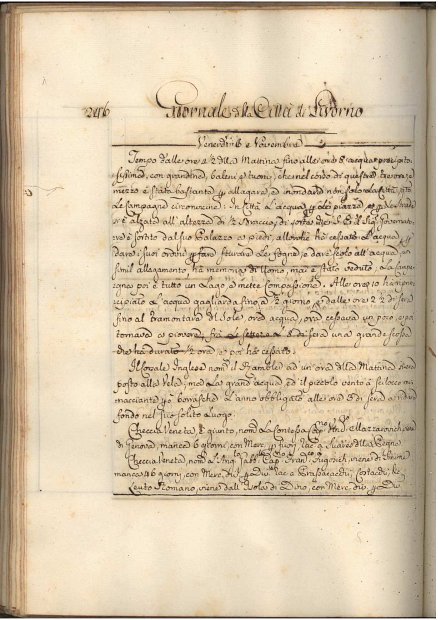 246 Giornale della Città di Livorno
Venerdì 6 Novembre
Tempo dalle ore 2 della Mattina fino alle ore 8 acqua
con grandine, baleni, e tuoni, che nel corso di queste
mezzo è stato bastante p allagare, e inondare non solo la Città
le campagne circonvicine: In Città l'acqua p le piazze e strade
s'è alzata all'altezza di 1/2 Braccia, di sorte che S.E. il Sig.
è sortito dal suo Palazzo a piedi, allorchè hà cessato l'acqua, p
dare i suoi ordini p fare sturare le fogne, e dare scolo all'acqua,
simil allagamento hà memoria di Uomo, mai è stato veduto, e la campa
gna poi è tutto un Lago, e mette compassione. Alle ore 10 hà prin
cipiato l'acqua gagliarda fino a 1/2 giorno, e dalle ore 22 di sera
fino al Tramontare del Sole ora acqua, ora cessava un poco, e poi
tornava a piovere, frà le sette e le 8 di sera una grande
che hà durato 1/2 ora e poi hà cessato.
Il Inglese nom. il Rambler ad un'ora della Mattina
posto alla Vela, mà la grand'acqua, ed il piccolo vento a scilocco
minacciante p borasche l'anno obbligato alle ore 8 di sera a
fondo nel suo solito luogo.
Checcia Veneta è giunto, nom. la Contessa Cap.
di Genova, manca 6 giorni, con Merc. p fuori
Checcia Veneta, nom. Cap. viene di Fiume
manca 46 giorni, con Merc. div. p Div.
Leuto Romano, viene dall'Isola di con Merc. div. p Div.